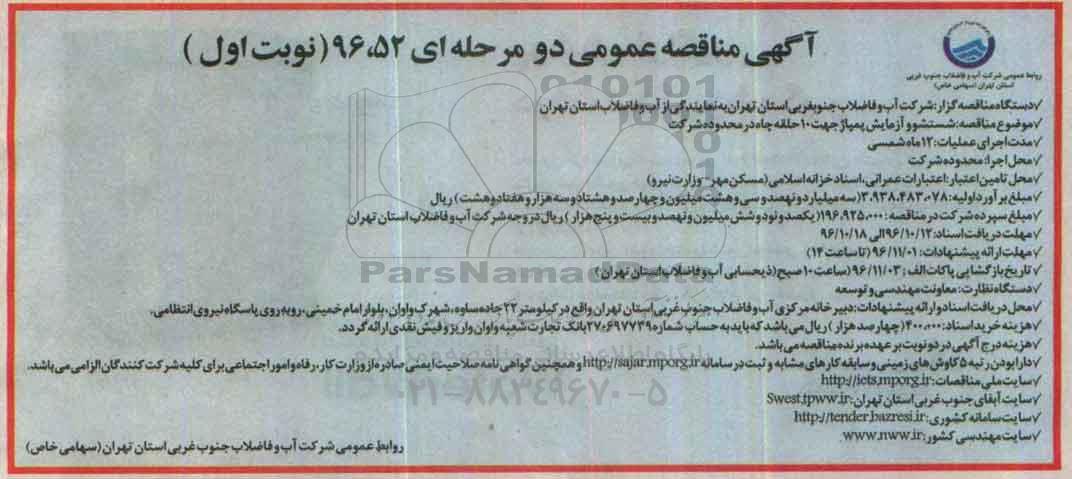 آگهی مناقصه عمومی دو مرحله ای ۹۶،۵۲ (نوبت اول)
روابط عمومی شرکت آب و فاضلاب جنوب غربی
استان تهران (سهامی خاص)
√دستگاه مناقصه گزار: شرکت آب و فاضلاب جنوبغربی استان تهران به نمایندگی از آب و فاضلاب استان تهران
√موضوع مناقصه: شستشو و آزمایش پمپاژ جهت ۱۰ حلقه چاه در محدوده شرکت
√مدت اجرای عملیات: ۱۲ماه شمسی
√محل اجرا: محدوده شرکت
√محل تامین اعتبار: اعتبارات عمرانی، اسناد خزانه اسلامی (مسکن مهر - وزارت نیرو)
√مبلغ برآورد اولیه: ۳،۹۳۸،۴۸۳،۰۷۸(سه میلیارد و نهصد و سی و هشت میلیون و چهارصد و هشتاد و سه هزار و هفتاد و هشت) ریال
√مبلغ سپرده شرکت در مناقصه: ۱۹۶،۹۲۵،۰۰۰(یکصد و نود و شش میلیون و نهصد و بیست و پنج هزار) ریال در وجه شرکت آب و فاضلاب استان تهران
√مهلت دریافت اسناد: ۹۶/۱۰/۱۲الی ۹۶/۱۰/۱۸
√مهلت ارائه پیشنهادات: ۹۶/۱۱/۰۱ (تا ساعت ۱۴)
√تاریخ بازگشایی پاکات الف: ۹۶/۱۱/۰۳ (ساعت ۱۰ صبح) (ذیحسابی آب و فاضلاب استان تهران)
√دستگاه نظارت: معاونت مهندسی و توسعه
√محل دریافت اسناد و ارائه پیشنهادات: دبیرخانه مرکزی آب و فاضلاب جنوب غربی استان تهران واقع در کیلومتر ۲۲ جاده ساوه، شهرک واوان، بلوار امام خمینی، روبه روی پاسگاه نیروی انتظامی.
√هزینه خرید اسناد: ۴۰۰،۰۰۰ (چهارصد هزار) ریال می باشد که باید به حساب شماره ۲۷۰۶۹۷۷۳۹ بانک تجارت شعبه واوان واریز و فیش نقدی ارائه گردد.
√هزینه درج آگهی در دو نوبت بر عهده برنده مناقصه می باشد.
√دارا بودن رتبه ۵ کاوش های زمینی و سابقه کارهای مشابه و ثبت در سامانه http://sajar.mporg.ir و همچنین گواهی نامه صلاحیت ایمنی صادره از وزارت کار، رفاه و امور اجتماعی برای کلیه شرکت کنندگان الزامی می باشد.
√سایت ملی مناقصات: http://iets.mporg.ir
√سایت آبفای جنوب غربی استان تهران: Swest.tpww.ir
√سایت سامانه کشوری: http://tender.bazresi.ir
√سایت مهندسی کشور: www.nww.ir
روابط عمومی شرکت آب و فاضلاب جنوب غربی استان تهران (سهامی خاص)
ParsNamadData
۰۲۱-۸۸۳۴۹۶۷۰-۵